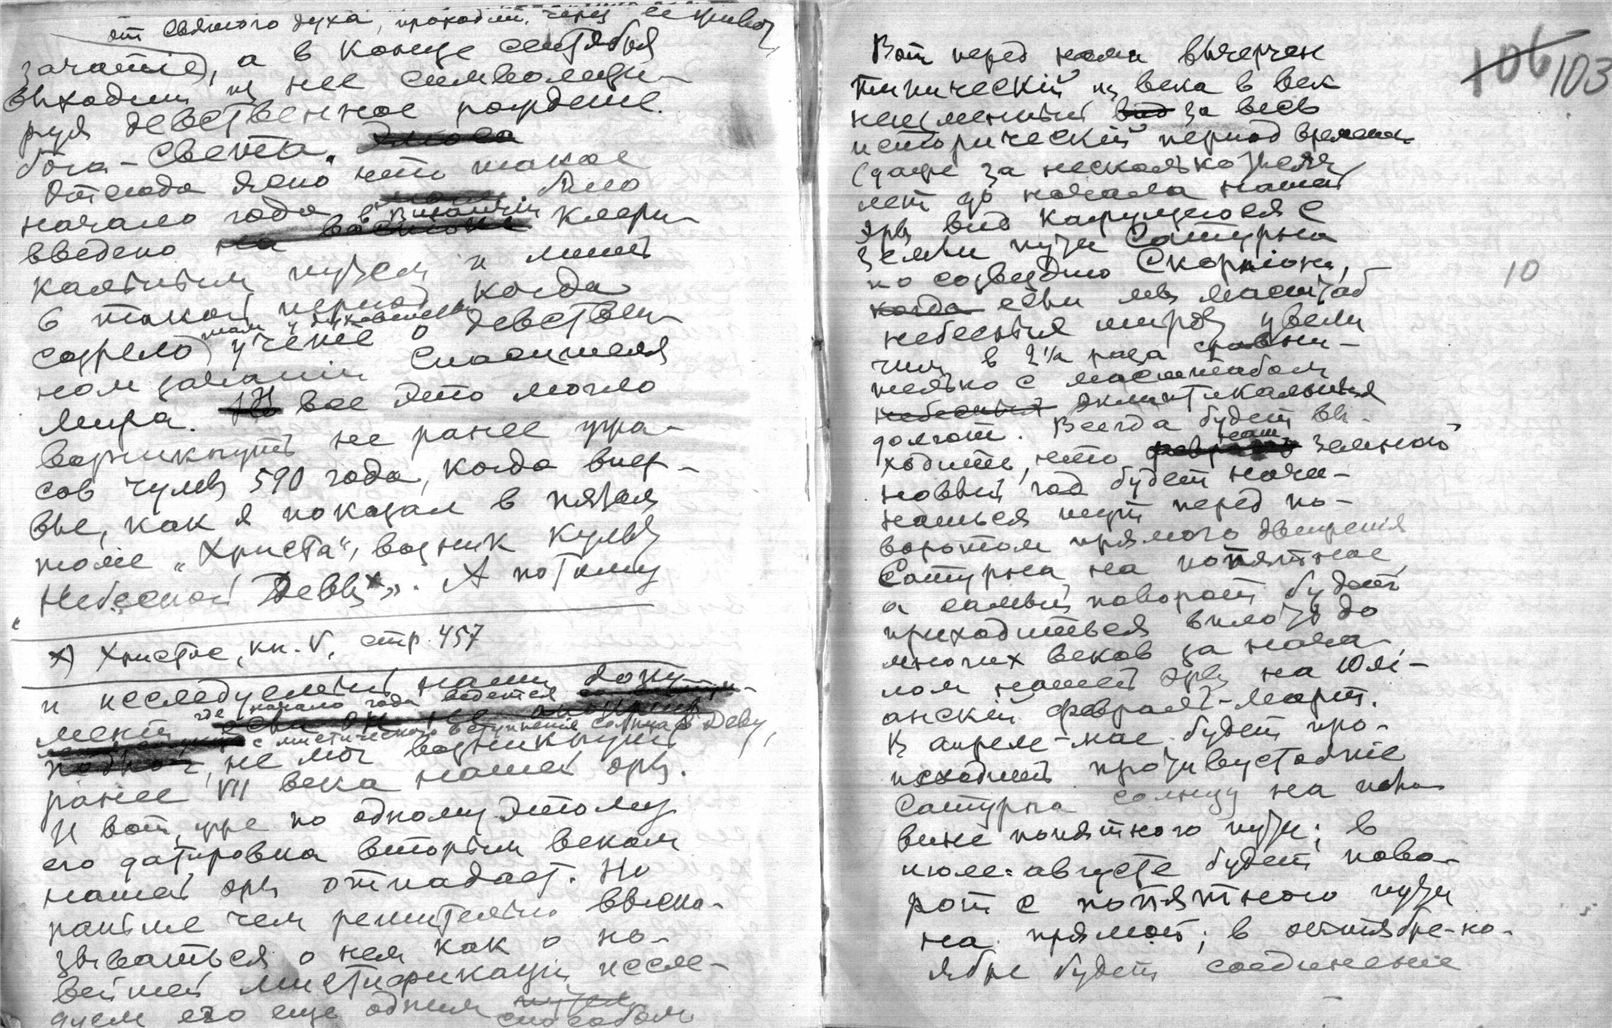 от святого духа, проходит через ее
зачатие), а в конце сентября
выходит из нее символизи-
руя девственное рождение
бога-света.
Отсюда ясно что такое
начало года могло было
введено на востоке в Византии клери-
кальным путем и лишь
в такой период когда
созрело там у духовенства учение о девствен-
ном зачатии Спасителя
Мира. Но все это могло
возникнуть не ранее ура-
сов чумы 590 года, когда впер-
вые, как я показал в пятом
томе „Христа“, возник культ
„Небесной Девы*)“. А потому
*) Христос, кн. V, стр. 457
и исследуемый нами доку-
мент, где начало года ведется
с мистического вступления солнца в Деву,
не мог возникнуть
ранее VII века нашей эры.
И вот, уже по одному этому
его датировка вторым веком
нашей эры отпадает. Но
раньше чем решительно выска-
зываться о нем как о но-
вейшей мистификации, иссле-
дуем его еще одним путем
способом
106 103
Вот перед нами вычерчен
типический из века в век
неизменный вид за весь
исторический период времени
(даже за несколько тысяч
лет до начала нашей
эры вид кажущегося с
земли пути Сатурна
по созвездию Скорпиона,
когда если мы масштаб
небесных широт увели
чим в 2½ раза сравни-
тельно с масштабом
небесных эклиптикальных
долгот. Всегда будет вы-
ходить, что наш земной
новый год будет начи-
наться перед по-
воротом прямого движения
Сатурна на попятное,
а самый поворот будет
приходиться вплоть до
многих веков за нача-
лом нашей эры на юли-
анский февраль-март.
В апреле-мае будет про-
исходить противустояние
Сатурна солнцу на поло-
вине попятного пути; в
июле-августе будет пово-
рот с попятного пути
на прямой; в октябре-но-
ябре будет соединение
10